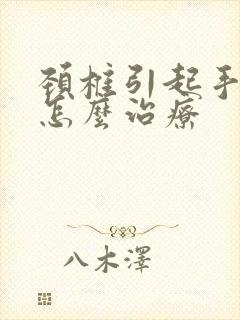 頸椎引起手
怎麼治療
八木澤